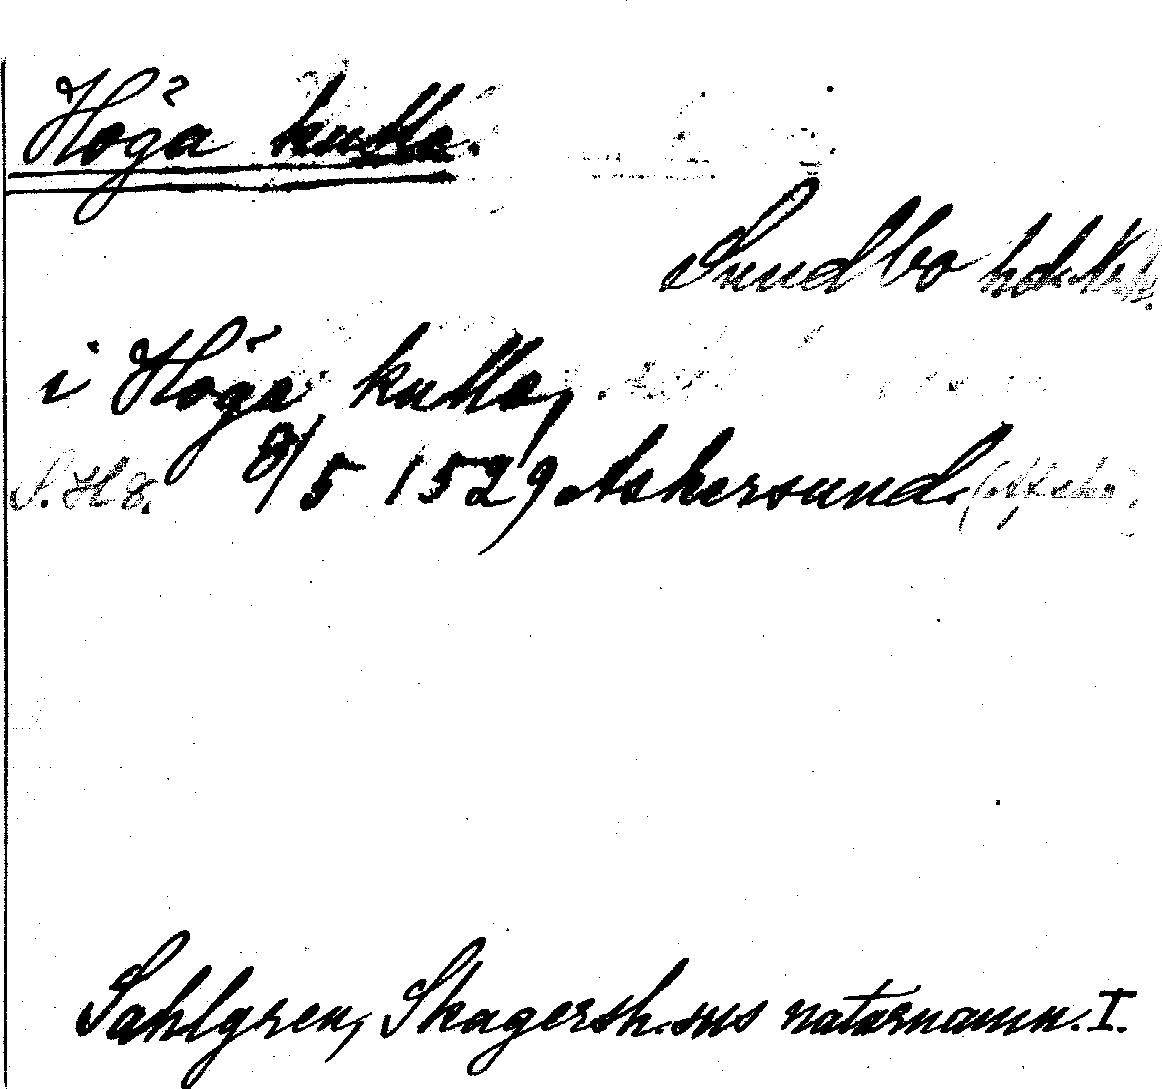 Höga kulla.
Sundbo hd. N.
i Höga kulla,
S. H 8. 8/5 1529 Askersund.
Sahlgren, Skagersh. sns naturnamn. I.